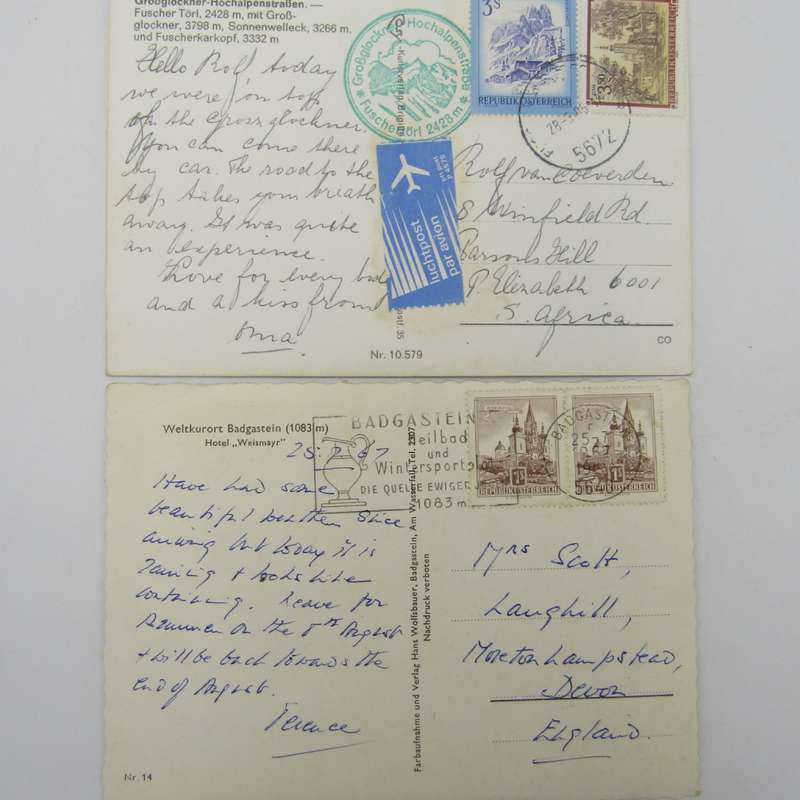 Großglockner-Hochalpenstraßen. —
Fuscher Törl, 2428 m, mit Groß-
glockner, 3798 m, Sonnenwelleck, 3266 m,
und Fuscherkarkopf, 3332 m
Hello Rolf, today
we were on top
of the Grossglockner.
You can come there
by car. The road to the
top takes your breath
away. It was quite
an experience.
Love for every bod
and a kiss from
Oma.
Großglockner Hochalpenstraße
* Fuschertörl 2428 m *
3 S
REPUBLIK ÖSTERREICH
3.50
REPUBLIK ÖSTERREICH
5672
per post
P 4575
luchtpost
par avion
Rolf van Coeverden
8 Winfield Rd.
Parsons Hill
P. Elizabeth 6001
S. Africa.
Nr. 10.579
CO
Weltkurort Badgastein (1083 m)
Hotel „Weismayr"
25.7.67
BADGASTEIN
Heilbad
und
Wintersport
DIE QUELLE EWIGER
1083 m
BADGASTEIN
25.-7.
REPUBLIK ÖSTERREICH
1S
REPUBLIK ÖSTERREICH
1S
Have had some
beautiful weather since
arriving but today it is
raining & looks like
continuing. Leave for
on the 8th August
& will be back towards the
end of August.
Terence
Farbaufnahme und Verlag Hans Wolfsbauer, Badgastein, Am Wasserfall, Tel. 2307
Nachdruck verboten
Mrs Scott,
Langhill,
Moretonhampstead,
Devon
England.
Nr. 14